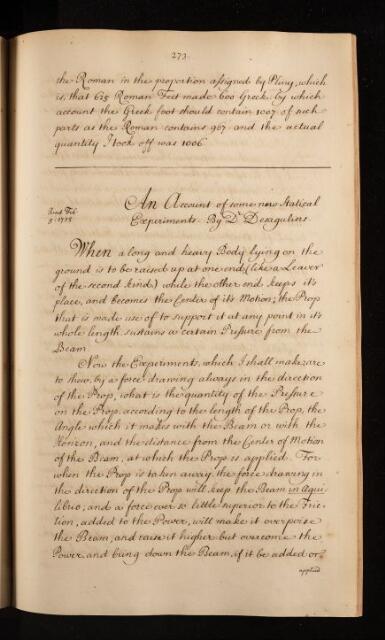 273.
the Roman in the proportion assigned by Pliny, which
is, that 625 Roman Feet made 600 Greek by which
account the Greek foot should contain 1007 of such
parts as the Roman contains 967 and the actual
quantity I took off was 1006
An Account of some new Statical
Experiments. By Dr Desagulins.
Read Feb
When a long and heavy Body lying on the
ground is to be raised up at one end (like a Leaver
of the second kind) while the other end keeps its
place, and becomes the Center of its Motion; the Prop
that is made use of to support it at any point in its
whole length sustains a certain Pressure from the
Beam.
Now the Experiments, which I shall make are
to shew, by a force drawing always in the direction
of the Prop, what is the quantity of the Pressure
on the Prop according to the length of the Prop, the
Angle which it makes with the Beam or with the
Horizon, and the distance from the Center of Motion
of the Beam, at which the Prop is applied. For
when the Prop is taken away, the force drawing in
the direction of the Prop will keep the Beam in Aqui-
librio; and a force ever so little superior to the Fric-
tion, added to the Power, will make it overpoise
the Beam, and raise it higher but overcome the
Power and bring down the Beam, if it be added or
applied